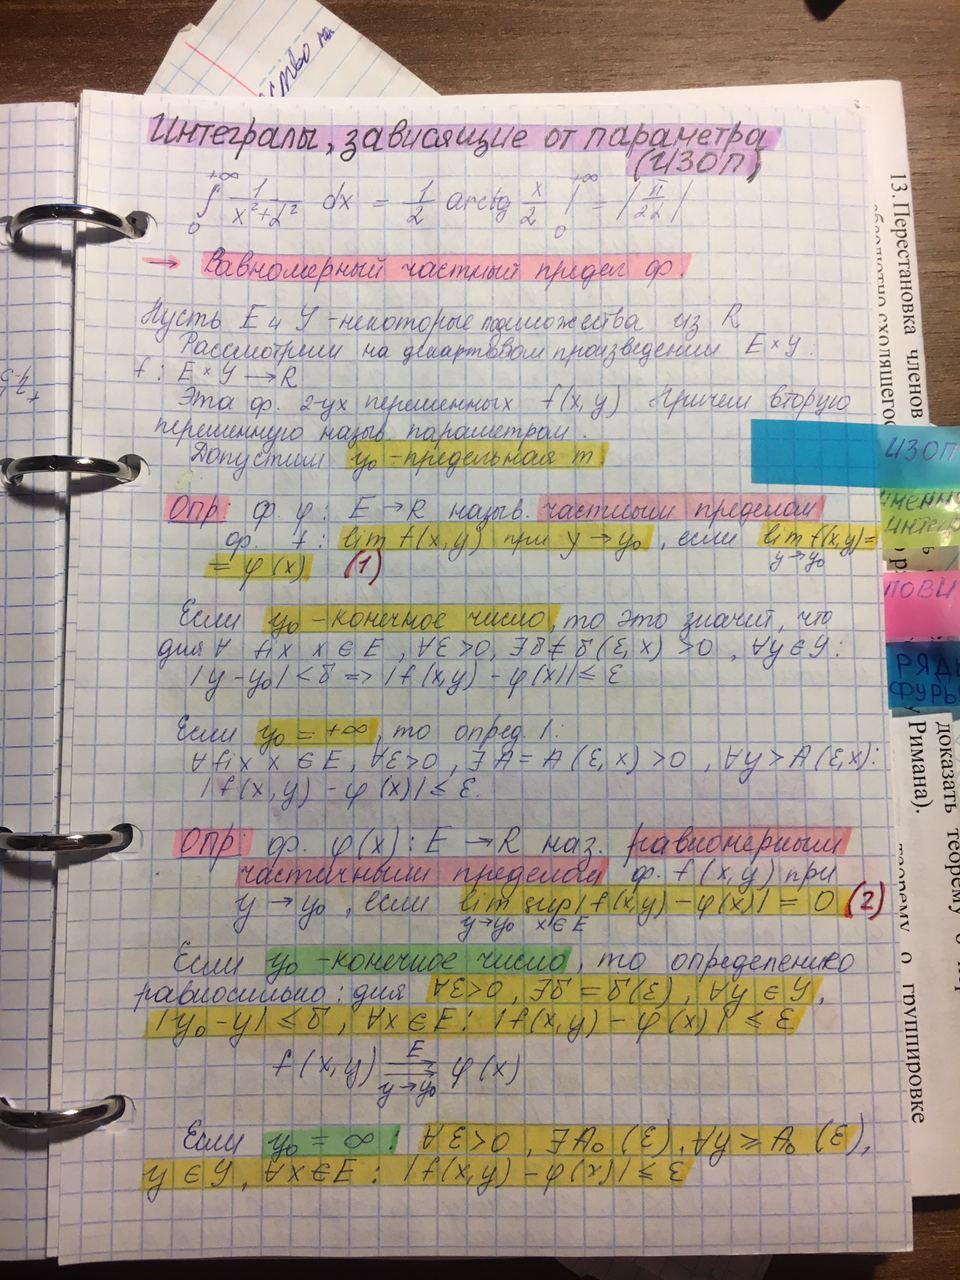 ство на
Интегралы, зависящие от параметра
(ИЗОП)
+∞ ∫ 0 1/(x²+α²) dx = 1/α arctg x/α |₀^{+∞} = |π/2α|
→ Равномерный частный предел ф.
Пусть E и Y - некоторые подмножества из R
Рассмотрим на декартовом произведении E×Y:
f: E×Y → R
Эта ф. 2-ух переменных f(x,y) Причем вторую
переменную назыв. параметром.
Допустим y₀ - предельная т
Опр: ф. φ: E → R назыв. частным пределом
ф. f: lim f(x,y) при y→y₀, если lim f(x,y) =
y→y₀
= φ(x) (1)
Если y₀ - конечное число, то это значит, что
для ∀ fix x∈E, ∀ε>0, ∃δ=δ(ε,x)>0, ∀y∈Y:
|y-y₀|<δ => |f(x,y) - φ(x)| ≤ ε
Если y₀ = +∞, то опред. 1:
∀ fix x∈E, ∀ε>0, ∃A=A(ε,x)>0, ∀y>A(ε,x):
|f(x,y) - φ(x)| ≤ ε.
Опр: ф. φ(x): E → R наз. равномерным
частичным пределом ф. f(x,y) при
y→y₀, если lim sup |f(x,y) - φ(x)| = 0 (2)
y→y₀ x∈E
Если y₀ - конечное число, то определению
равносильно: для ∀ε>0, ∃δ=δ(ε), ∀y∈Y,
|y₀-y| ≤ δ, ∀x∈E: |f(x,y) - φ(x)| ≤ ε
f(x,y) ⇉ φ(x)
E
y→y₀
Если y₀ = ∞: ∀ε>0, ∃A₀(ε), ∀y ≥ A₀(ε),
y∈Y, ∀x∈E: |f(x,y) - φ(x)| ≤ ε
13. Перестановка членов
абсолютно сходящегося
ИЗОП
ПОВИ
РЯДЫ
ФУРЬЕ
доказать теорему о
Римана).
теорему о группировке